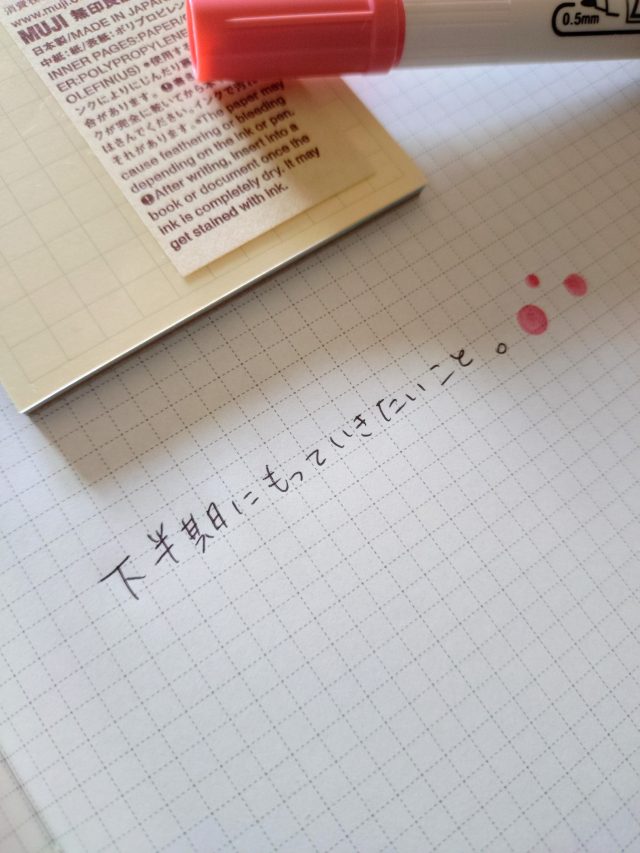 www.muji.
MUJI 無印良
日本製/MADE IN JAPAN
中紙:紙/表紙:ポリプロピレン
INNER PAGES:PAPER/
ER:POLYPROPYLENE
OLEFIN(US) ●使用す
ンクによりにじんだり
合があります。
クが完全に乾いてから
はさんでください。インクで汚れ
それがあります。●The paper may
cause feathering or bleeding
depending on the ink or pen.
After writing, insert into a
book or document once the
ink is completely dry. It may
get stained with ink.
0.5mm
下半期にもっていきたいこと。